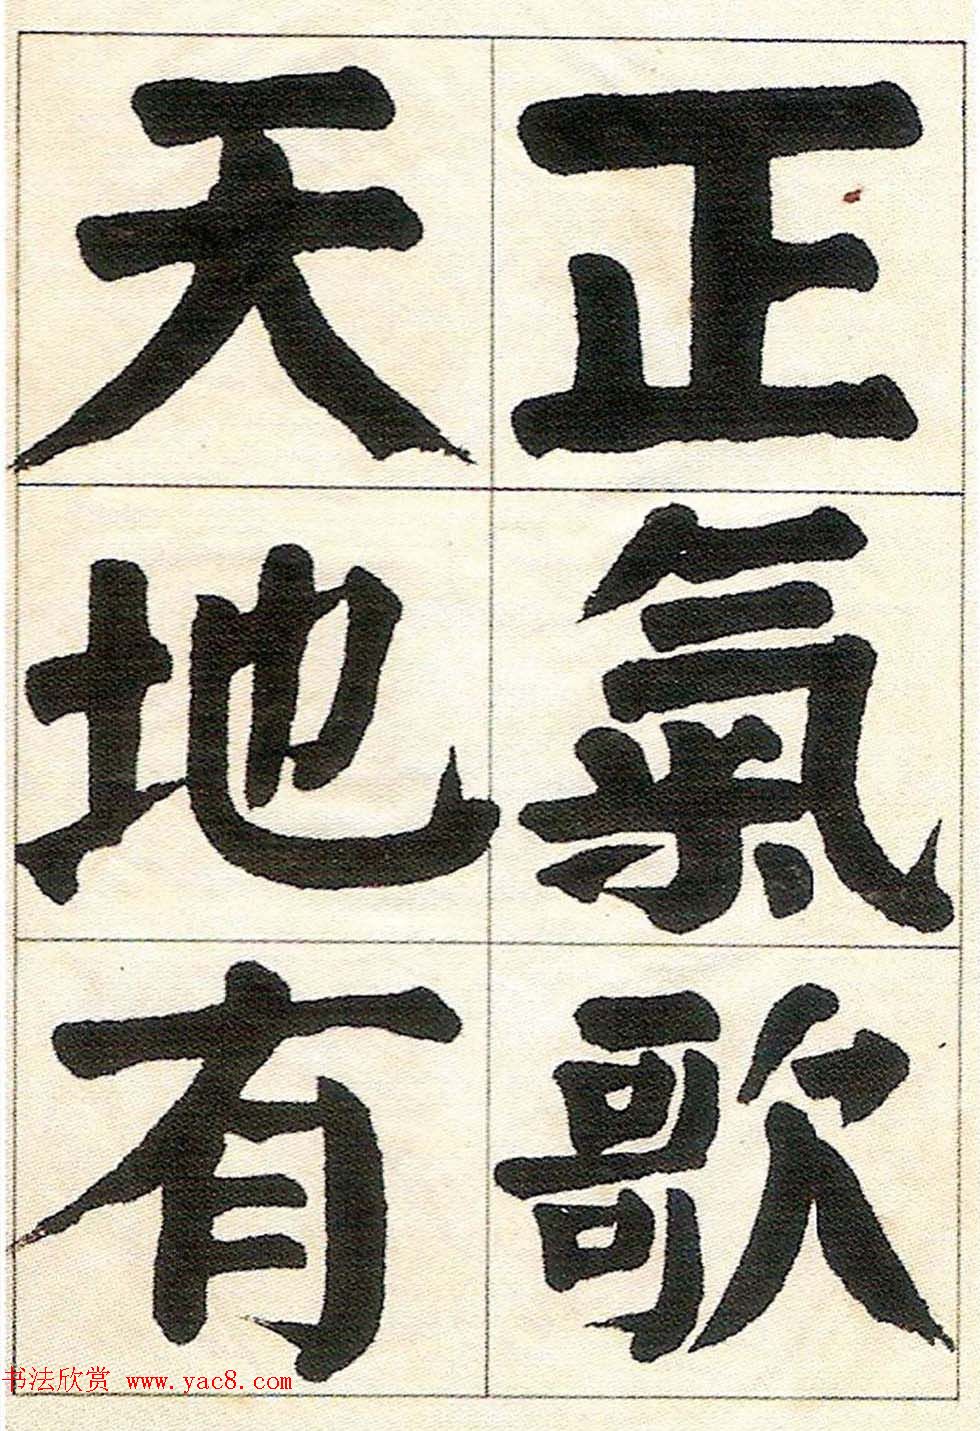 正氣歌
天地有
书法欣赏 www.yac8.com